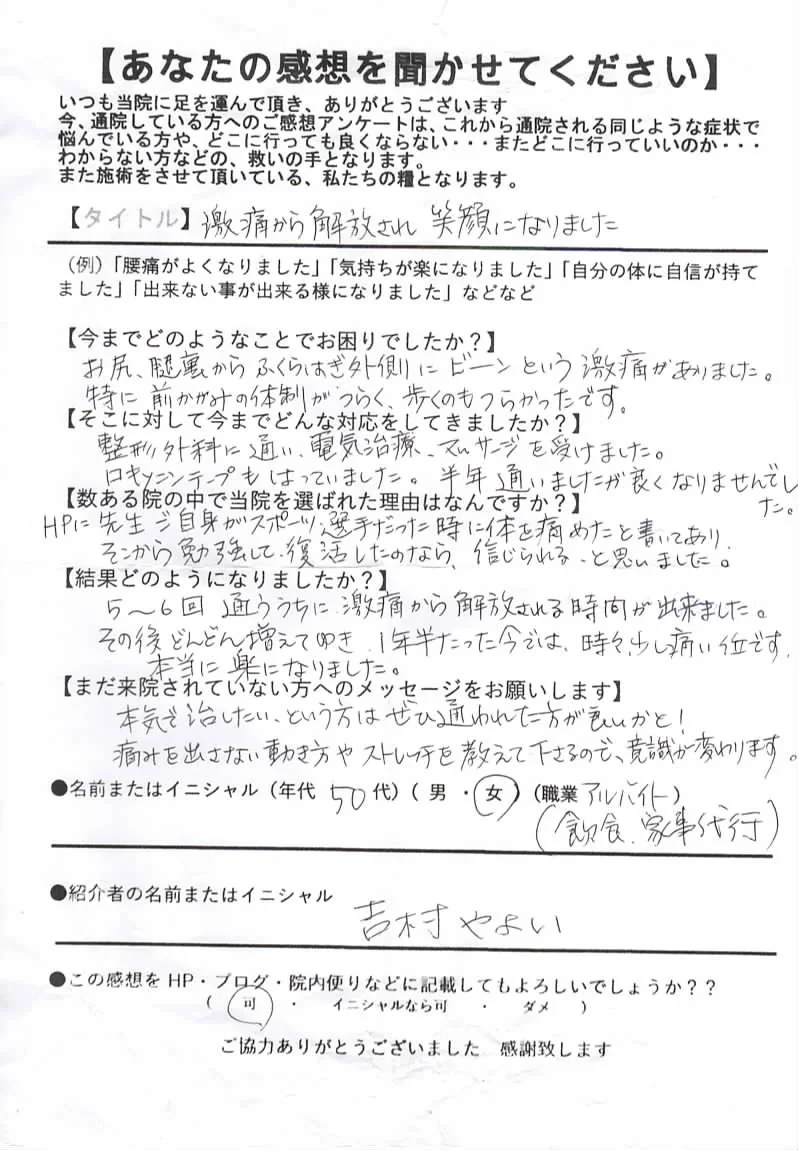 【あなたの感想を聞かせてください】
いつも当院に足を運んで頂き、ありがとうございます
今、通院している方へのご感想アンケートは、これから通院される同じような症状で
悩んでいる方や、どこに行っても良くならない・・・またどこに行っていいのか・・・
わからない方などの、救いの手となります。
また施術をさせて頂いている、私たちの糧となります。
【タイトル】激痛から解放され 笑顔になりました
（例）「腰痛がよくなりました」「気持ちが楽になりました」「自分の体に自信が持て
ました」「出来ない事が出来る様になりました」などなど
【今までどのようなことでお困りでしたか？】
お尻、腿裏からふくらはぎ外側にビーンという激痛がありました。
特に前かがみの体制がつらく、歩くのもつらかったです。
【そこに対して今までどんな対応をしてきましたか？】
整形外科に通い、電気治療、マッサージを受けました。
ロキソニンテープもはっていました。半年通いましたが良くなりませんでし
た。
【数ある院の中で当院を選ばれた理由はなんですか？】
HPに先生ご自身がスポーツ選手だった時に体を痛めたと書いてあり、
そこから勉強して復活したのなら、信じられる、と思いました。
【結果どのようになりましたか？】
5～6回通ううちに激痛から解放される時間が出来ました。
その後どんどん増えてゆき、1年半たった今では、時々少し痛い位です。
本当に楽になりました。
【まだ来院されていない方へのメッセージをお願いします】
本気で治したい、という方はぜひ通われた方が良いかと！
痛みを出さない動き方やストレッチを教えて下さるので、意識が変わります。
●名前またはイニシャル（年代 50 代）（ 男 ・ 女 ）（職業 アルバイト）
（飲食、家事代行）
●紹介者の名前またはイニシャル
吉村やよい
●この感想をHP・ブログ・院内便りなどに記載してもよろしいでしょうか？？
（ 可 ・ イニシャルなら可 ・ ダメ ）
ご協力ありがとうございました 感謝致します